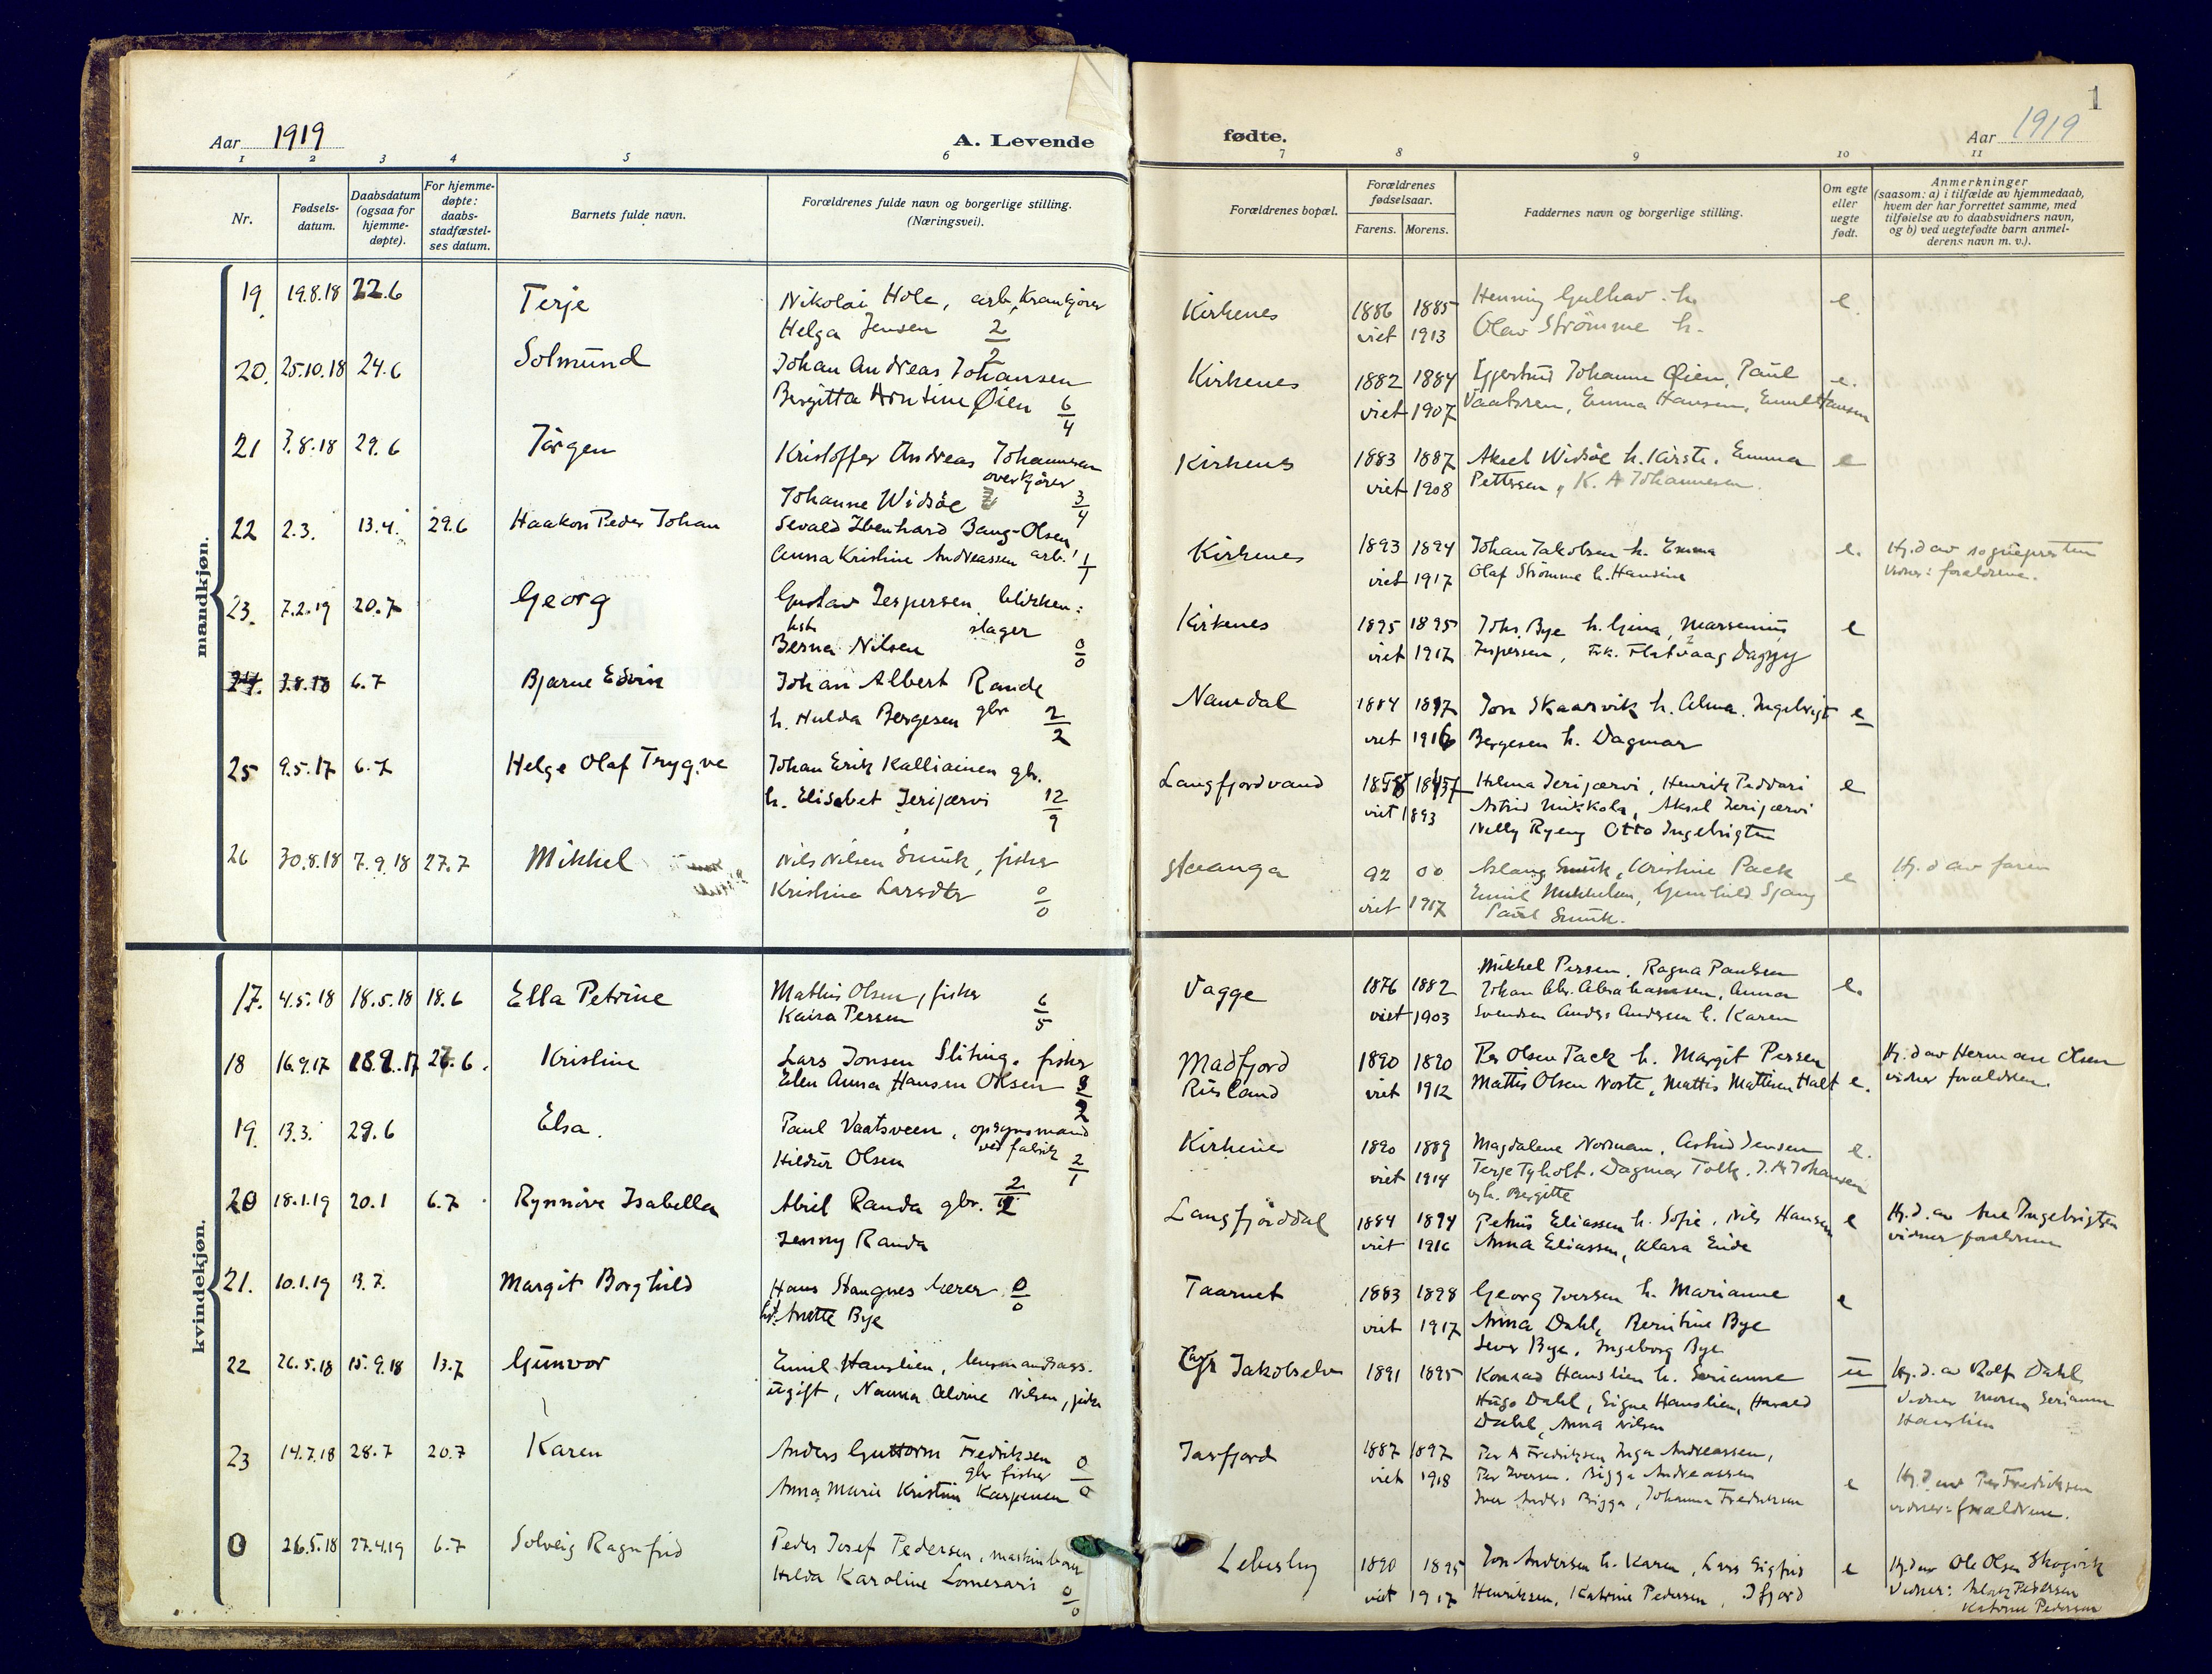 Aar 1919
A. Levende
fødte.
Aar 1919
1
1 2 3 4 5 6 7 8 9 10 11
Nr.
Fødsels-
datum.
Daabsdatum
(ogsaa for
hjemme-
døpte).
For hjemme-
døpte:
daabs-
stadfæstel-
ses datum.
Barnets fulde navn.
Forældrenes fulde navn og borgerlige stilling.
(Næringsvei).
Forældrenes bopæl.
Forældrenes
fødselsaar.
Farens. Morens.
Faddernes navn og borgerlige stilling.
Om egte
eller
uegte
født.
Anmerkninger
(saasom: a) i tilfælde av hjemmedaab,
hvem der har forrettet samme, med
tilføielse av to daabsvidners navn,
og b) ved uegtefødte barn anmel-
derens navn m. v.).
mandkjøn.
19. 19.8.18 22.6 Terje Nikolai Hola, arb, Krankjører Kirkenes 1886 1885 Henning h. e.
Helga Jensen 2/2 viet 1913 Olav Strømme h.
20. 25.10.18 24.6 Solmund Johan Andreas Johansen Kirkenes 1882 1884 Johanne Øien, Paul e.
Bergitta Arntine Øien 6/4 viet 1907 Emma Hansen, Emil Hansen
21 3.8.18 29.6 Jørgen Kristoffer Andreas Johannesen Kirkenes 1883 1887 Aksel Widsøe h. Kirsti, Emma e
overkjører
Johanne Widsøe 3/4 viet 1908 Pettersen, K. A Johannesen.
22 2.3. 13.4. 29.6 Haakon Peder Johan Sevald Ibenhard Bang-Olsen Kirkenes 1893 1894 Johan Jakobsen h. Emma e. Hj.d av sognepresten
Anna Kristine Andreassen arb. 1/1 viet 1917 Olaf Strømme h. Hansine vidner: forældrene.
23. 7.2.19 20.7 Georg Gustav Jespersen blikken- Kirkenes 1895 1895 Johs. Bye h. Gina, Marsenius e
hst. slager
Berna Nilsen 0/0 viet 1917 Jespersen, Frk. Flatvaag Dagny
24. 3.8.18 6.7 Bjarne Edvin Johan Albert Randa Namdal 1884 1897 Jon Skaarvik h. Alma. Ingebrigt e
h. Hulda Bergesen gbr 2/2 viet 1916 Bergesen h. Dagmar
25 9.5.17 6.7 Helge Olaf Trygve Johan Erik Kalliainen gbr. Langfjordvand Hilma Jerijærvi, Henrik Peddari e
h. Elisabet Jerijærvi 12/9 viet 1893 Astrid Mikkola, Aksel Jerijærvi
Nelly Ryeng Otto Ingebrigten
26 30.8.18 7.9.18 27.7 Mikkel Nils Nilsen Smuk, fisker 92 00 Aslaug Smuk, Kristine Pack e Hj.d av faren
Kristine Larsdtr 0/0 viet 1917 Emil Mikkelsen, Gunhild Sjang
Paul Smuk.
kvindekjøn.
17. 4.5.18 18.5.18 18.6 Ella Petrine Mathis Olsen, fisker 6/5 Vagge 1876 1882 Mikkel Persen, Ragna Paulsen e.
Kaisa Persen viet 1903 Johan Abr. Abrahamsen, Anna
Svendsen Anders Andersen h. Karen
18 16.9.17 26.6. Kristine Lars Jonsen Sliting. fisker Madfjord 1890 1890 Per Olsen Pack h. Margit Persen Hj.d av Herman Olsen
Elen Anna Hansen Olsen Risland viet 1912 Mattis Olsen Norte, Mattis Mathisen Halt e. vidner forældren.
19. 13.3. 29.6 Elsa. Paul Vaatsveen, opsynsmand Kirkenes 1890 1889 Magdalene Norman, Astrid Jensen e.
ved fabrik
Hildur Olsen 2/1 viet 1914 Terje Tyholt. Dagmar Tolk. J. A Johansen
og h. Bergitte
20 18.1.19 20.1 6.7 Rynnøve Isabella Abiel Randa gbr. Langfjorddal 1884 1894 Petrus Eliassen h. Sofie, Nils Hansen e Hj.d. av Ane Ingebrigtsen
Jenny Randa viet 1916 Anna Eliassen, Klara Eide vidner forældren
21. 10.1.19 13.7. Margit Borghild Hans Stangnes lærer 0/0 Taarnet 1883 1898 Georg Iversen h. Marianne e
hst. Anette Bye viet 1917 Anna Dahl, Berntine Bye
Sever Bye, Ingeborg Bye
22 26.5.18 15.9.18 13.7 Gunvor Emil Hanslien, lensmandsass. Jakobselv 1891 1895 Konrad Hanslien h. Serianne u Hj.d. av Rolf Dahl
ugift, Nanna Alvine Nilsen, pike Hugo Dahl, Signe Hanslien, Harald vidner moren Serianne
Dahl, Anna Nilsen Hanslien
23 14.7.18 28.7 20.7 Karen Anders Guttorm Fredriksen 0/0 Jarfjord 1887 1897 Per A Fredriksen Inga Andreassen,
gbr fisker viet 1918 Per Iversen. Bigga Andreassen e Hj.d av Per Fredriksen
Anna Marie Kristine Karpinen Iver Anders Bigga, Johanna Fredriksen vidner: forældrene.
0 26.5.18 27.4.19 6.7 Solveig Ragnfrid Peder Josef Pedersen, Lebesby 1890 1895 Jon Andersen h. Karen, Lars Sigfrid e Hj.d av Ole Olsen Skogvik
Hilda Karoline 0/0 viet 1917 Henriksen, Katrine Pedersen, Ifjord Vidner: Pedersen
Katrine Pedersen